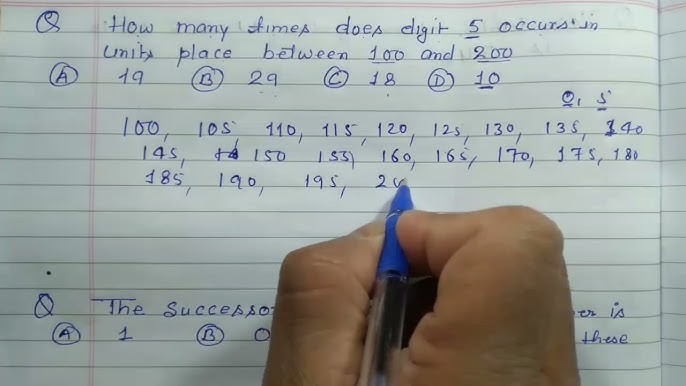 Q How many times does digit 5 occurs in
units place between 100 and 200
(A) 19 (B) 29 (C) 18 (D) 10
0, 5
100, 105, 110, 115, 120, 125, 130, 135, 140
145, 150 155, 160, 165, 170, 175, 180
185, 190, 195, 20
Q The is
(A) 1 (B) 0 these